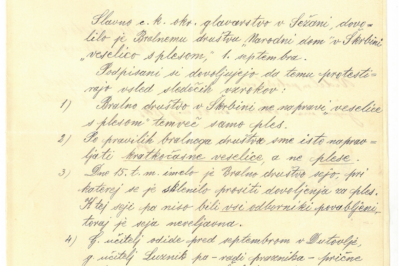 Slavno c. k. okr. glavarstvo v Sežani, dovo-
lilo je Bralnemu društvu "Narodni dom v Skrbini
"veselico s plesom," 1. septembra.
Podpisani si dovoljujejo da temu protesti-
rajo vsled sledečih vzrokov:
1) Bralno društvo v Skrbini ne napravi "veselice
s plesom" temveč samo ples.
2) Po pravilih bralnega društva sme isto naprav-
ljati kratkočasne veselice, a ne plese.
3) Dne 15. t. m. imelo je Bralno društvo sejo, pri
kateri se je sklenilo prositi dovoljenja za ples.
K tej seji pa niso bili vsi odborniki povabljeni,
torej je seja neveljavna.
4) G. učitelj odide pred septembrom v Dutovlje,
g. učitelj Luznik pa radi praznika prične